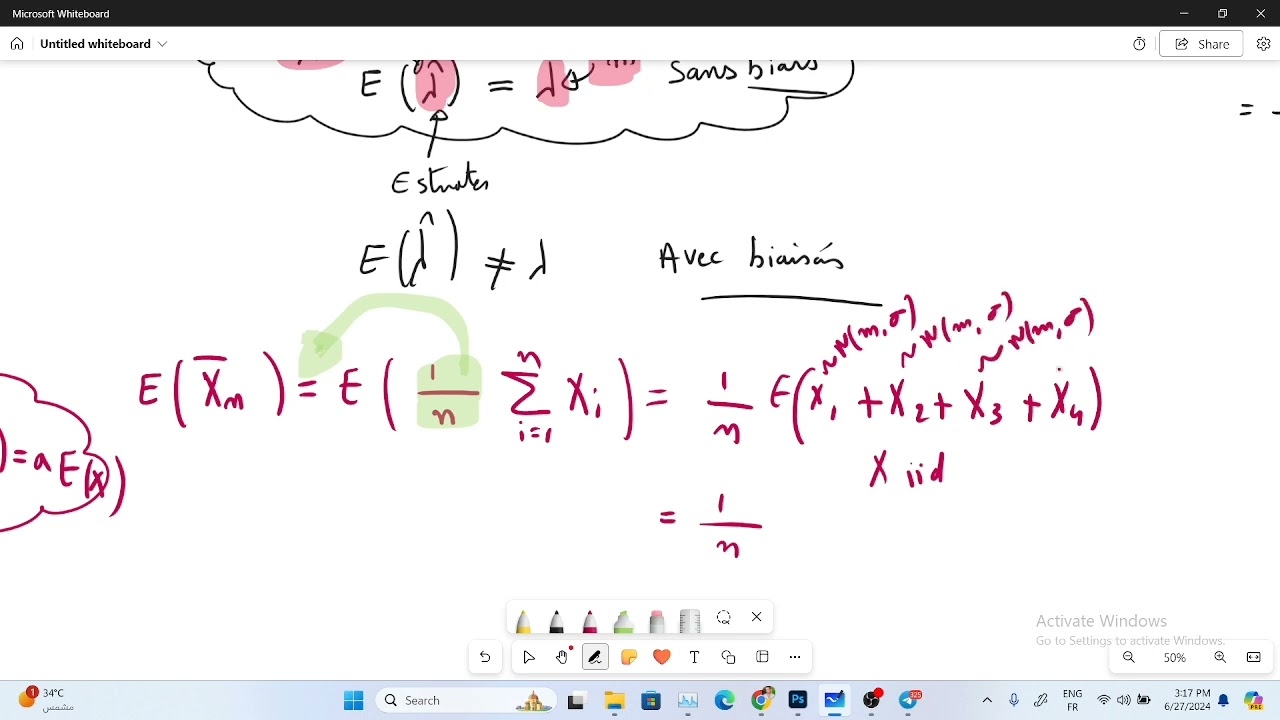 Microsoft Whiteboard
Untitled whiteboard
Share
E (λ̂) = λ Sans biais
= -
Estimater
E(λ̂) ≠ λ Avec biaisés
~N(m,σ) ~N(m,σ) ~N(m,σ)
E(X̄n) = E( 1/n ∑ i=1 n Xi ) = 1/n E(X1 + X2 + X3 + X4)
) = a E(X)
X iid
= 1/n
Activate Windows
Go to Settings to activate Windows.
T
50%
1 34°C
مشمس
Search
Ps
325
ENG
FR
3:17 PM
6/27/2024